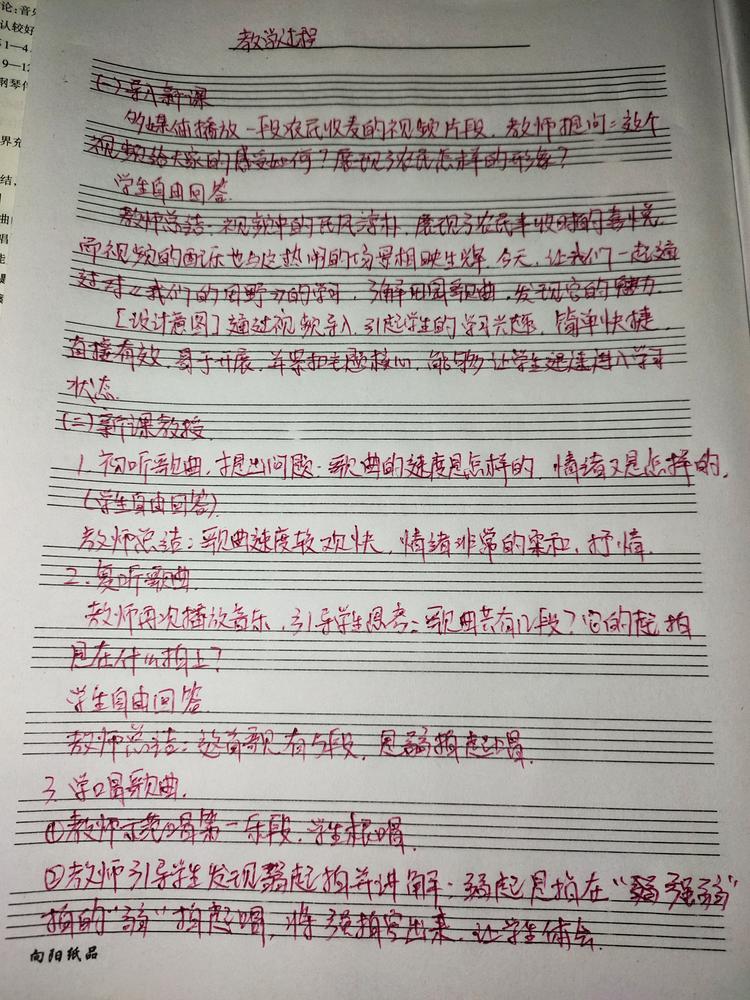 论:音乐
认较好
1—4
9—12
钢琴伴
界充
结,
曲
唱
能
教学过程
(一)导入新课
多媒体播放一段农民收麦的视频片段,教师提问:这个
视频给大家的感受如何?展现了农民怎样的形象?
学生自由回答.
教师总结:视频中的民风淳朴,展现了农民丰收时的喜悦,
而视频的配乐也与这热闹的场景相映生辉,今天,让我们一起通
过对《我们的田野》的学习,了解田园歌曲,发现它的魅力.
[设计意图]通过视频导入,引起学生的学习兴趣,简单快捷,
直接有效,易于开展,并紧扣主题核心,能够让学生迅速进入学习
状态.
(二)新课教授
1.初听歌曲,提出问题:歌曲的速度是怎样的,情绪又是怎样的,
(学生自由回答)
教师总结:歌曲速度较欢快,情绪非常的柔和,抒情.
2.复听歌曲
教师再次播放音乐,引导学生思考:歌曲共有几段?它的起拍
是在什么拍上?
学生自由回答
教师总结:这首歌有5段,是弱拍起唱.
3.学唱歌曲.
①教师示范唱第一乐段,学生跟唱.
②教师引导学生发现弱起拍并讲解:弱起是指在“弱强弱”
拍的“弱”拍起唱,将强拍空出来,让学生体会.
向阳纸品